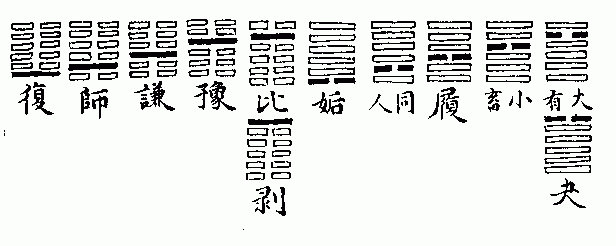 大有
夬
小畜
履
同人
姤
比
剥
豫
謙
師
復